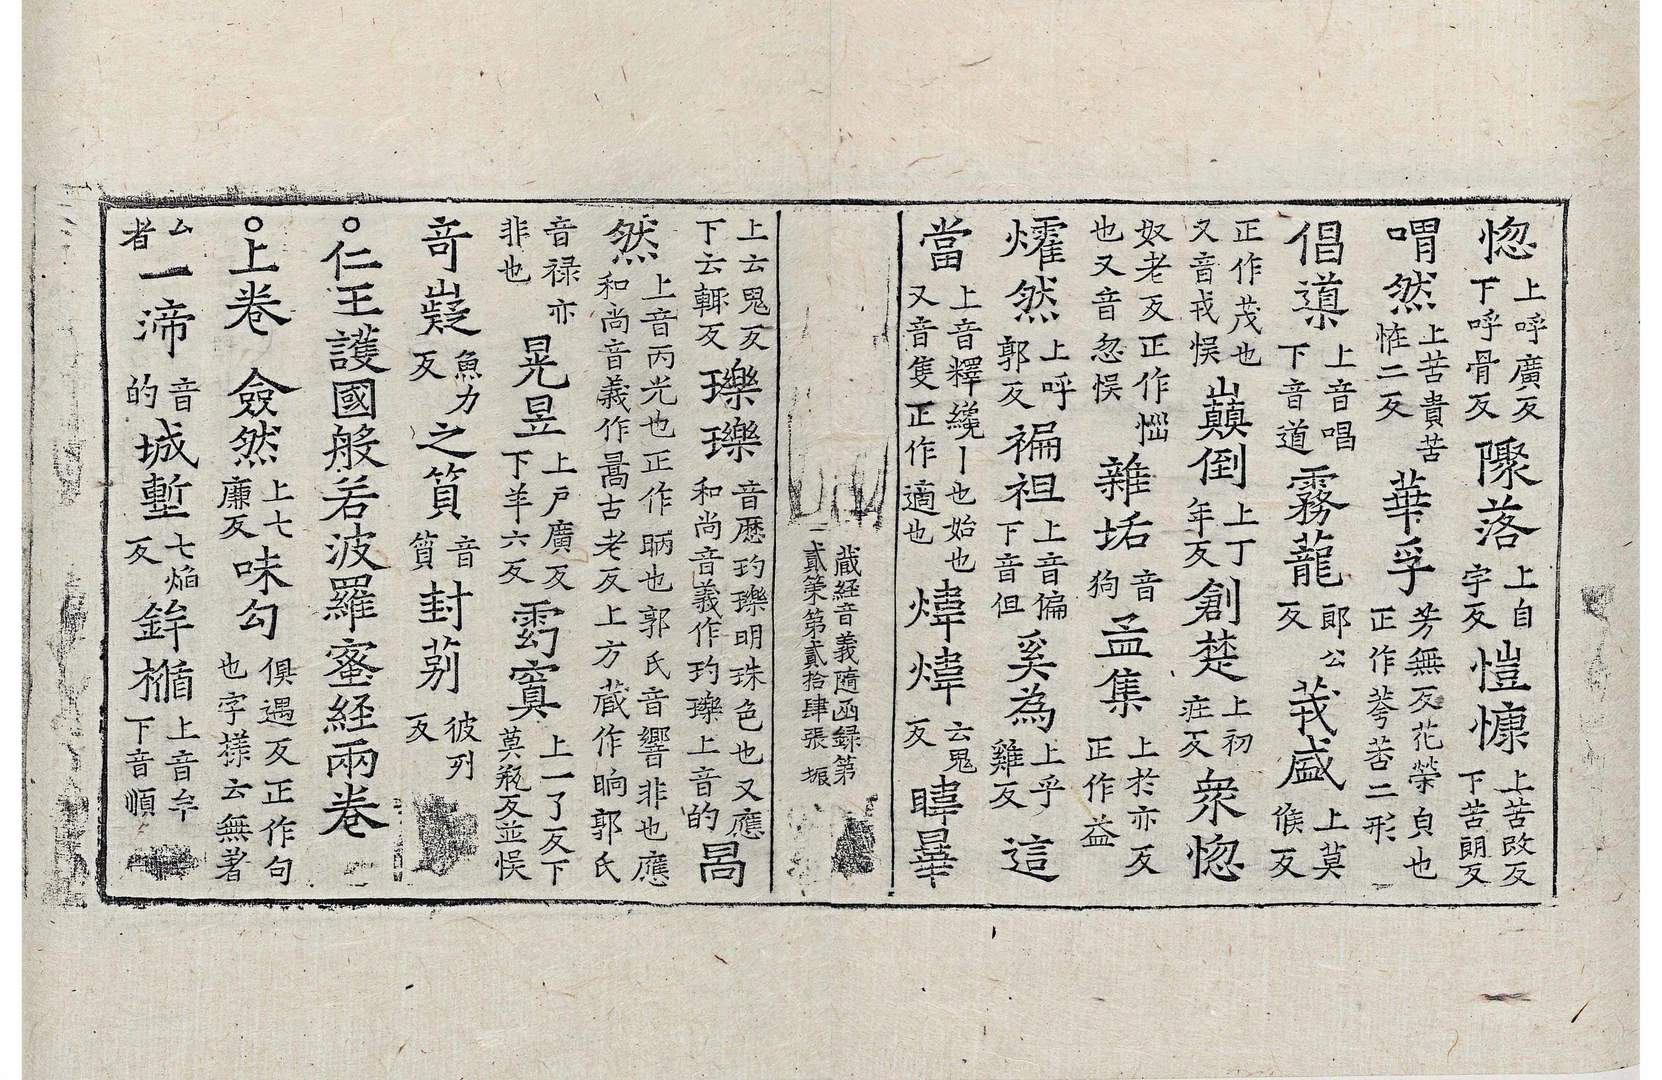 惚上呼廣反下呼骨反隳落上自宇反愷慷上苦改反下苦朗反
喟然上苦貴苦恠二反華孚芳無反花榮皃也正作荂䓇二形
倡導上音唱下音道霧蘢郎公反茙盛上莫候反
正作茂也又音戎悮巓倒上丁年反創楚上初疰反衆惚
奴老反正作惱也又音忽悮雜垢音狗孟集上於亦反正作益
爠然上呼郭反褊袒上音偏下音但奚為上乎雞反這
當上音釋纔丨也始也又音隻正作適也煒煒云鬼反暐曅
藏經音義隨函録第貳第貳拾肆張 振
上云鬼反下云輒反瓅瓅音歷玓瓅明珠色也又應和尚音義作玓瓅上音的昺
然上音丙光也正作昞也郭氏音響非也應和尚音義作暠古老反上方藏作晌郭氏
音禄亦非也晃昱上戶廣反下羊六反雺寞上一了反下莫瓶反並悮
竒嶷魚力反之質音質封莂彼列反
○仁王護國般若波羅蜜經兩卷
○上卷僉然上七廉反味勾俱遇反正作句也字㨾云無著
厶者一渧音的城塹七焰反鉾楯上音牟下音順